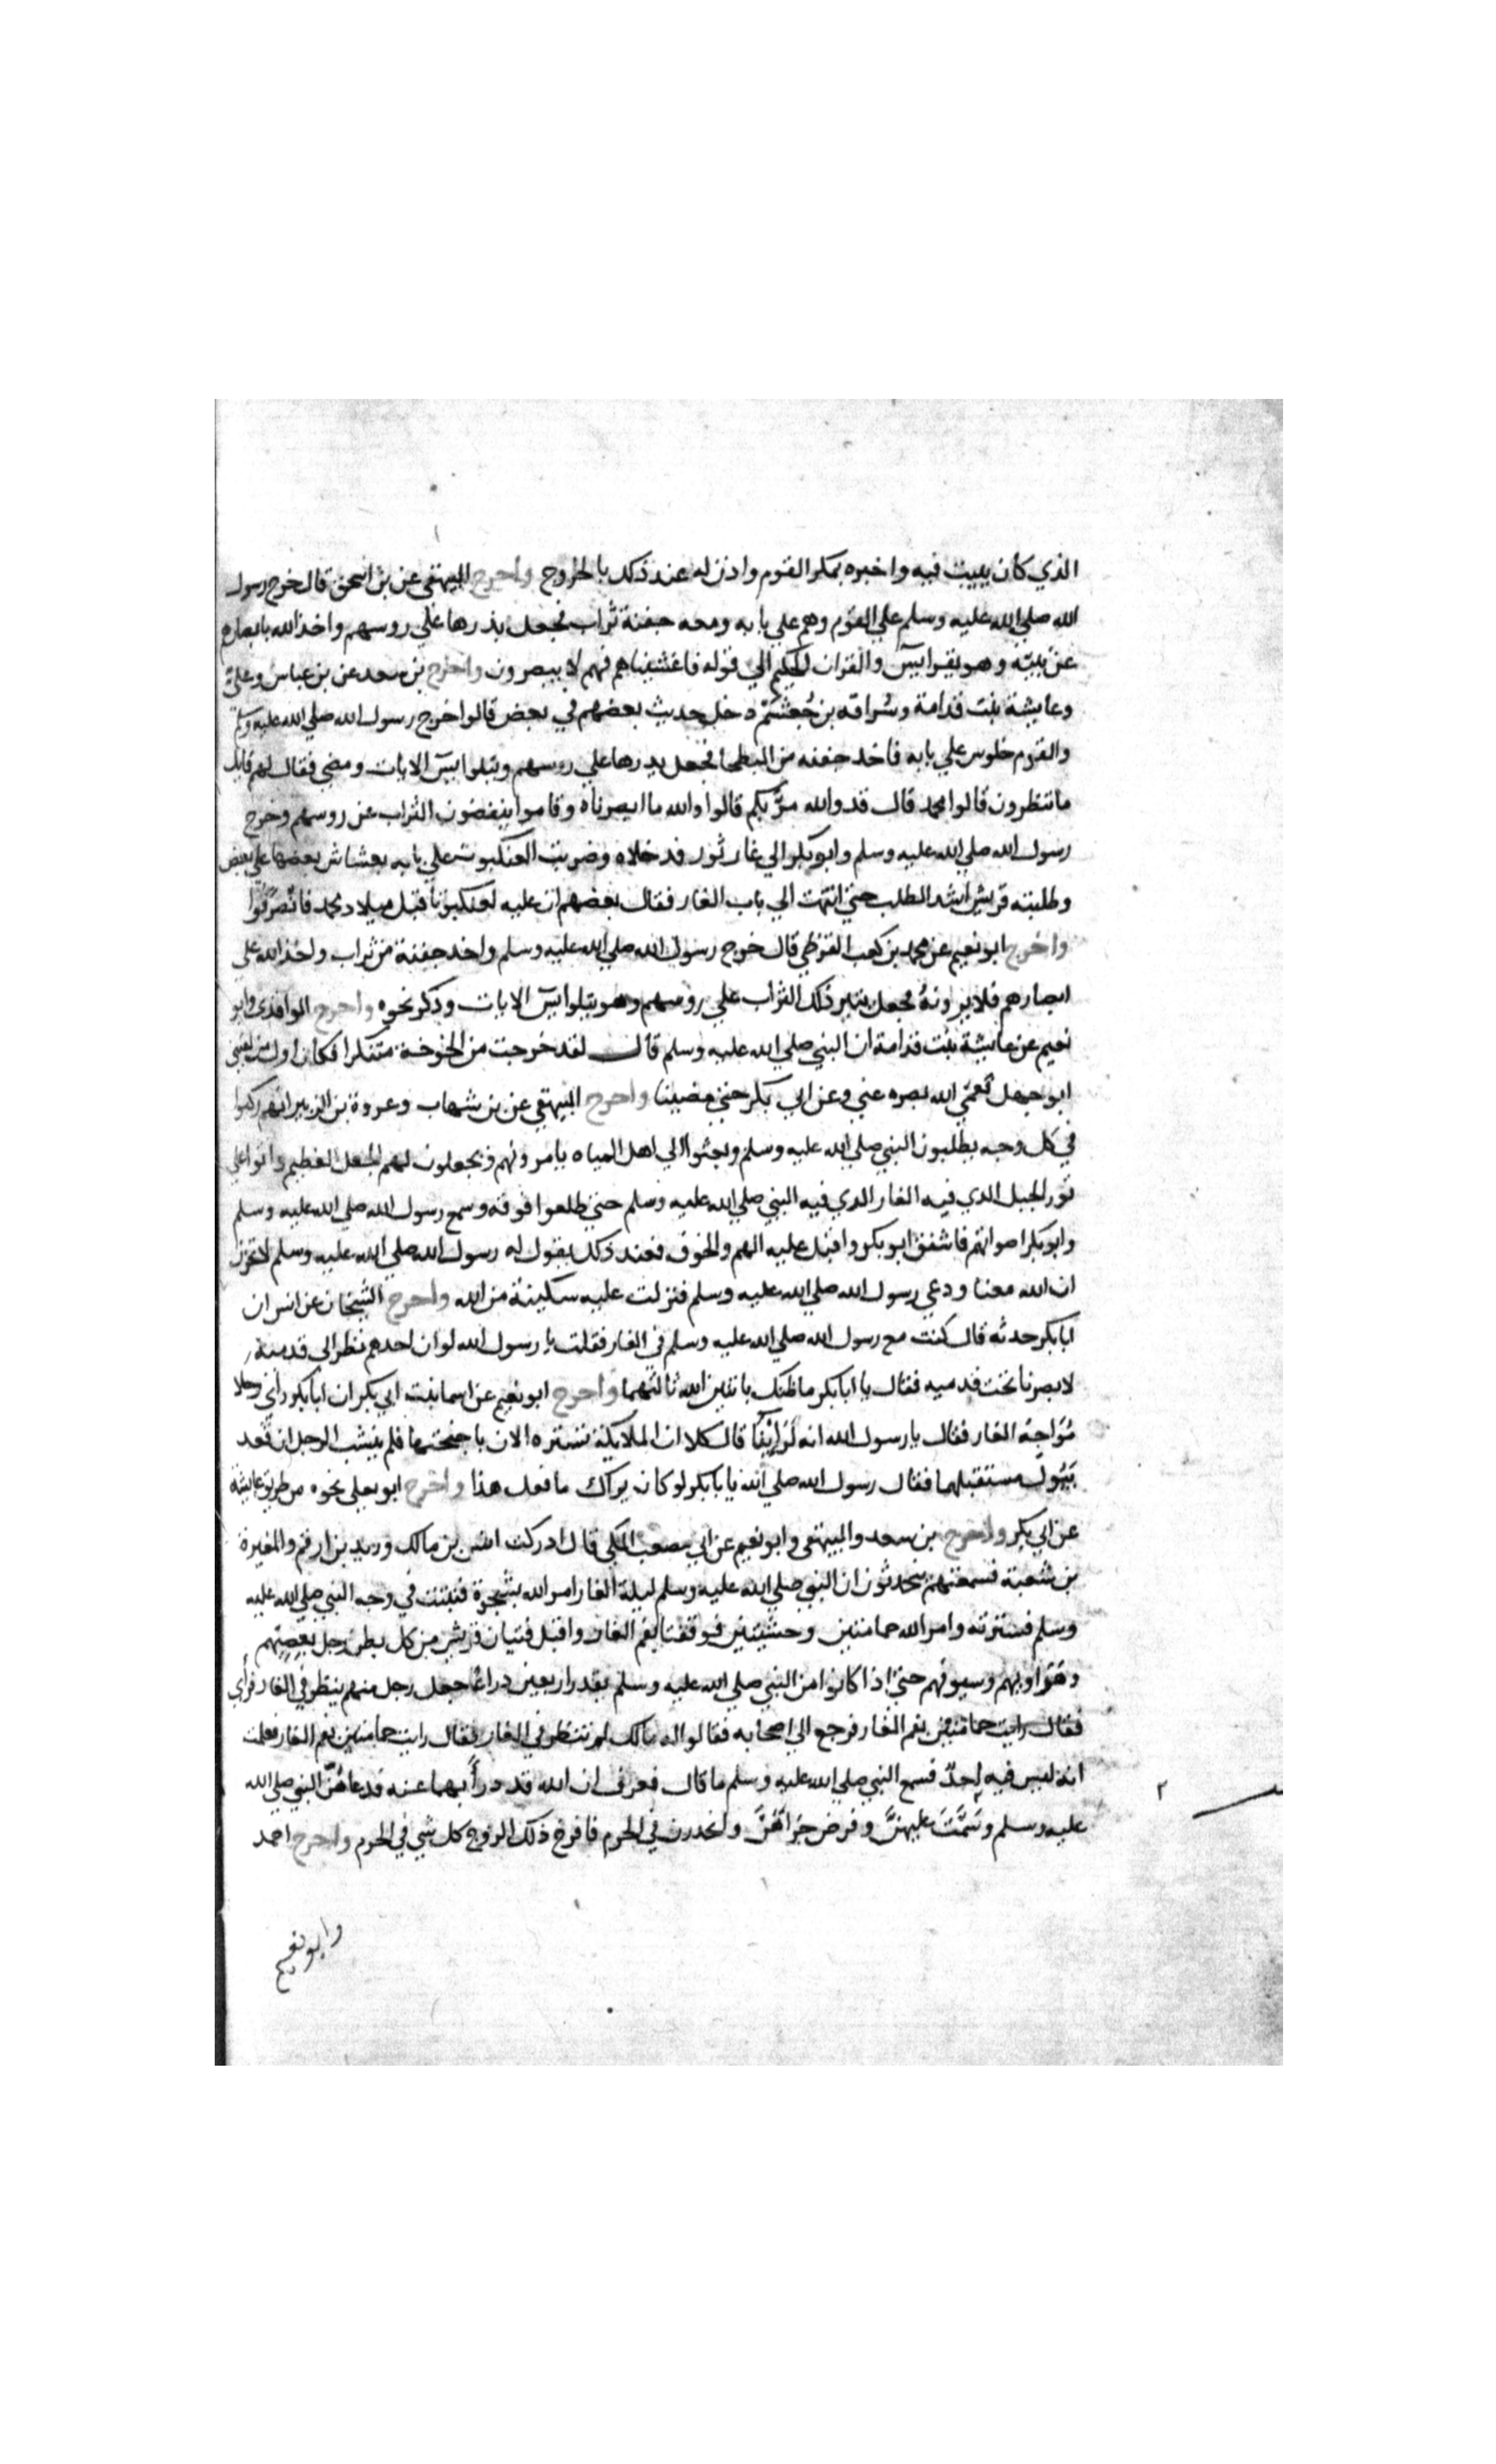 الذي كان يبيت فيه واخبره بمكر القوم واذن له عند ذلك بالخروج واخرج البيهقي عن بن اسحق قال خرج رسول
الله صلي الله عليه وسلم علي القوم وهم علي بابه ومعه حفنة تراب فجعل يذرها علي روسهم واخذ الله بابصارهم
عن نبيه وهو يقرا يسٓ والقران الحكيم الي قوله فاغشيناهم فهم لا يبصرون واخرج بن سعد عن بن عباس وعلي
وعايشة بنت قدامة وسُراقه بن جُعشُم دخل حديث بعضهم في بعض قالوا خرج رسول الله صلي الله عليه وسلم
والقوم جلوس علي بابه فاخذ حفنه من البطحا فجعل يدرها علي روسهم ويتلوا يسٓ الايات ومضي فقال لهم قايل
ما تنظرون قالوا محمد قال قد والله مرَّ بكم قالوا والله ما ابصرناه وقاموا ينفضون التراب عن روسهم وخرج
رسول الله صلي الله عليه وسلم وابو بكر الي غار ثور فدخلاه وضربت العنكبوت علي بابه بعشاش بعضها علي بعض
وطلبته قريش اشد الطلب حتي انتهت الي باب الغار فقال بعضهم ان عليه لعنكبوتا قبل ميلاد محمد فانصرفوا
واخرج ابو نعيم عن محمد بن كعب القرظي قال خرج رسول الله صلي الله عليه وسلم واخذ حفنة من تراب واخذ الله علي
ابصارهم فلا يرونهُ فجعل ينثر ذلك التراب علي روسهم وهو يتلوا يسٓ الايات وذكر نحوه واخرج الواقدي وابو
نعيم عن عايشة بنت قدامة ان النبي صلي الله عليه وسلم قال لقد خرجت من الخوخة متنكرا فكان اول من لقيني
ابو جهل فعمّي الله بصره عني وعن ابي بكر حتي مضينا واخرج البيهقي عن بن شهاب وعروة بن الزبير انهم ركبوا
في كل وجه يطلبون النبي صلي الله عليه وسلم وبعثوا الي اهل المياه يامرونهم ويجعلون لهم الجعل العظيم واتوا علي
ثور الجبل الدي فيه الغار الدي فيه النبي صلي الله عليه وسلم حتي طلعوا فوقه وسمع رسول الله صلي الله عليه وسلم
وابو بكر اصواتهم فاشفق ابو بكر واقبل عليه الهم والخوف فعند ذلك يقول له رسول الله صلي الله عليه وسلم لا تحزن
ان الله معنا ودعي رسول الله صلي الله عليه وسلم فنزلت عليه سكينة من الله واخرج الشيخان عن انس ان
ابا بكر حدثه قال كنت مع رسول الله صلي الله عليه وسلم في الغار فقلت يا رسول الله لو ان احدهم نظر الي قدميه
لابصرنا تحت قدميه فقال يا ابا بكر ما ظنك باثنين الله ثالثهما واخرج ابو نعيم عن اسما بنت ابي بكر ان ابا بكر راي رجلا
مُوَاجِهَ الغار فقال يا رسول الله انه لَرَائِيْنَا قال كلا ان الملايكة تستره الان باجنحتها فلم ينشب الرجل ان قعد
يَبُولُ مستقبلهما فقال رسول الله صلي الله يا بابكر لو كان يراك ما فعل هذا واخرج ابو يعلي نحوه من طريق عايشة
عن ابي بكر واخرج بن سعد والبيهقي وابو نعيم عن ابي مصعب المكي قال ادركت انس بن مالك وزيد بن ارقم والمغيرة
بن شعبة فسمعتهم يتحدثون ان النبي صلي الله عليه وسلم ليلة الغار امر الله بشجرة فنبتت في وجه النبي صلي الله عليه
وسلم فسترته وامر الله حمامتين وحشيتين فوقفتا بفم الغار واقبل فتيان قريش من كل بطن رجل بعِصِيّهم
وهَرَاويهم وسيوفهم حتي اذا كانوا من النبي صلي الله عليه وسلم بقدر اربعين دراعًا جعل رجل منهم ينظر في الغار فرأي
فقال رايت حمامتين بفم الغار فرجع الي اصحابه فقالوا له مالك لم تنظر في الغار فقال رايت حمامتين بفم الغار فعلمت
انه ليس فيه احدٌ فسمع النبي صلي الله عليه وسلم ما قال فعرف ان الله قد درأ بهما عنه فدعا لهُنّ النبي صلي الله
عليه وسلم وسَمَّتَ عليهنَّ وفرض جزاهُنَّ وانحدرن في الحرم فافرخ ذلك الزوج كل شي في الحرم واخرج احمد
وابو نعيم